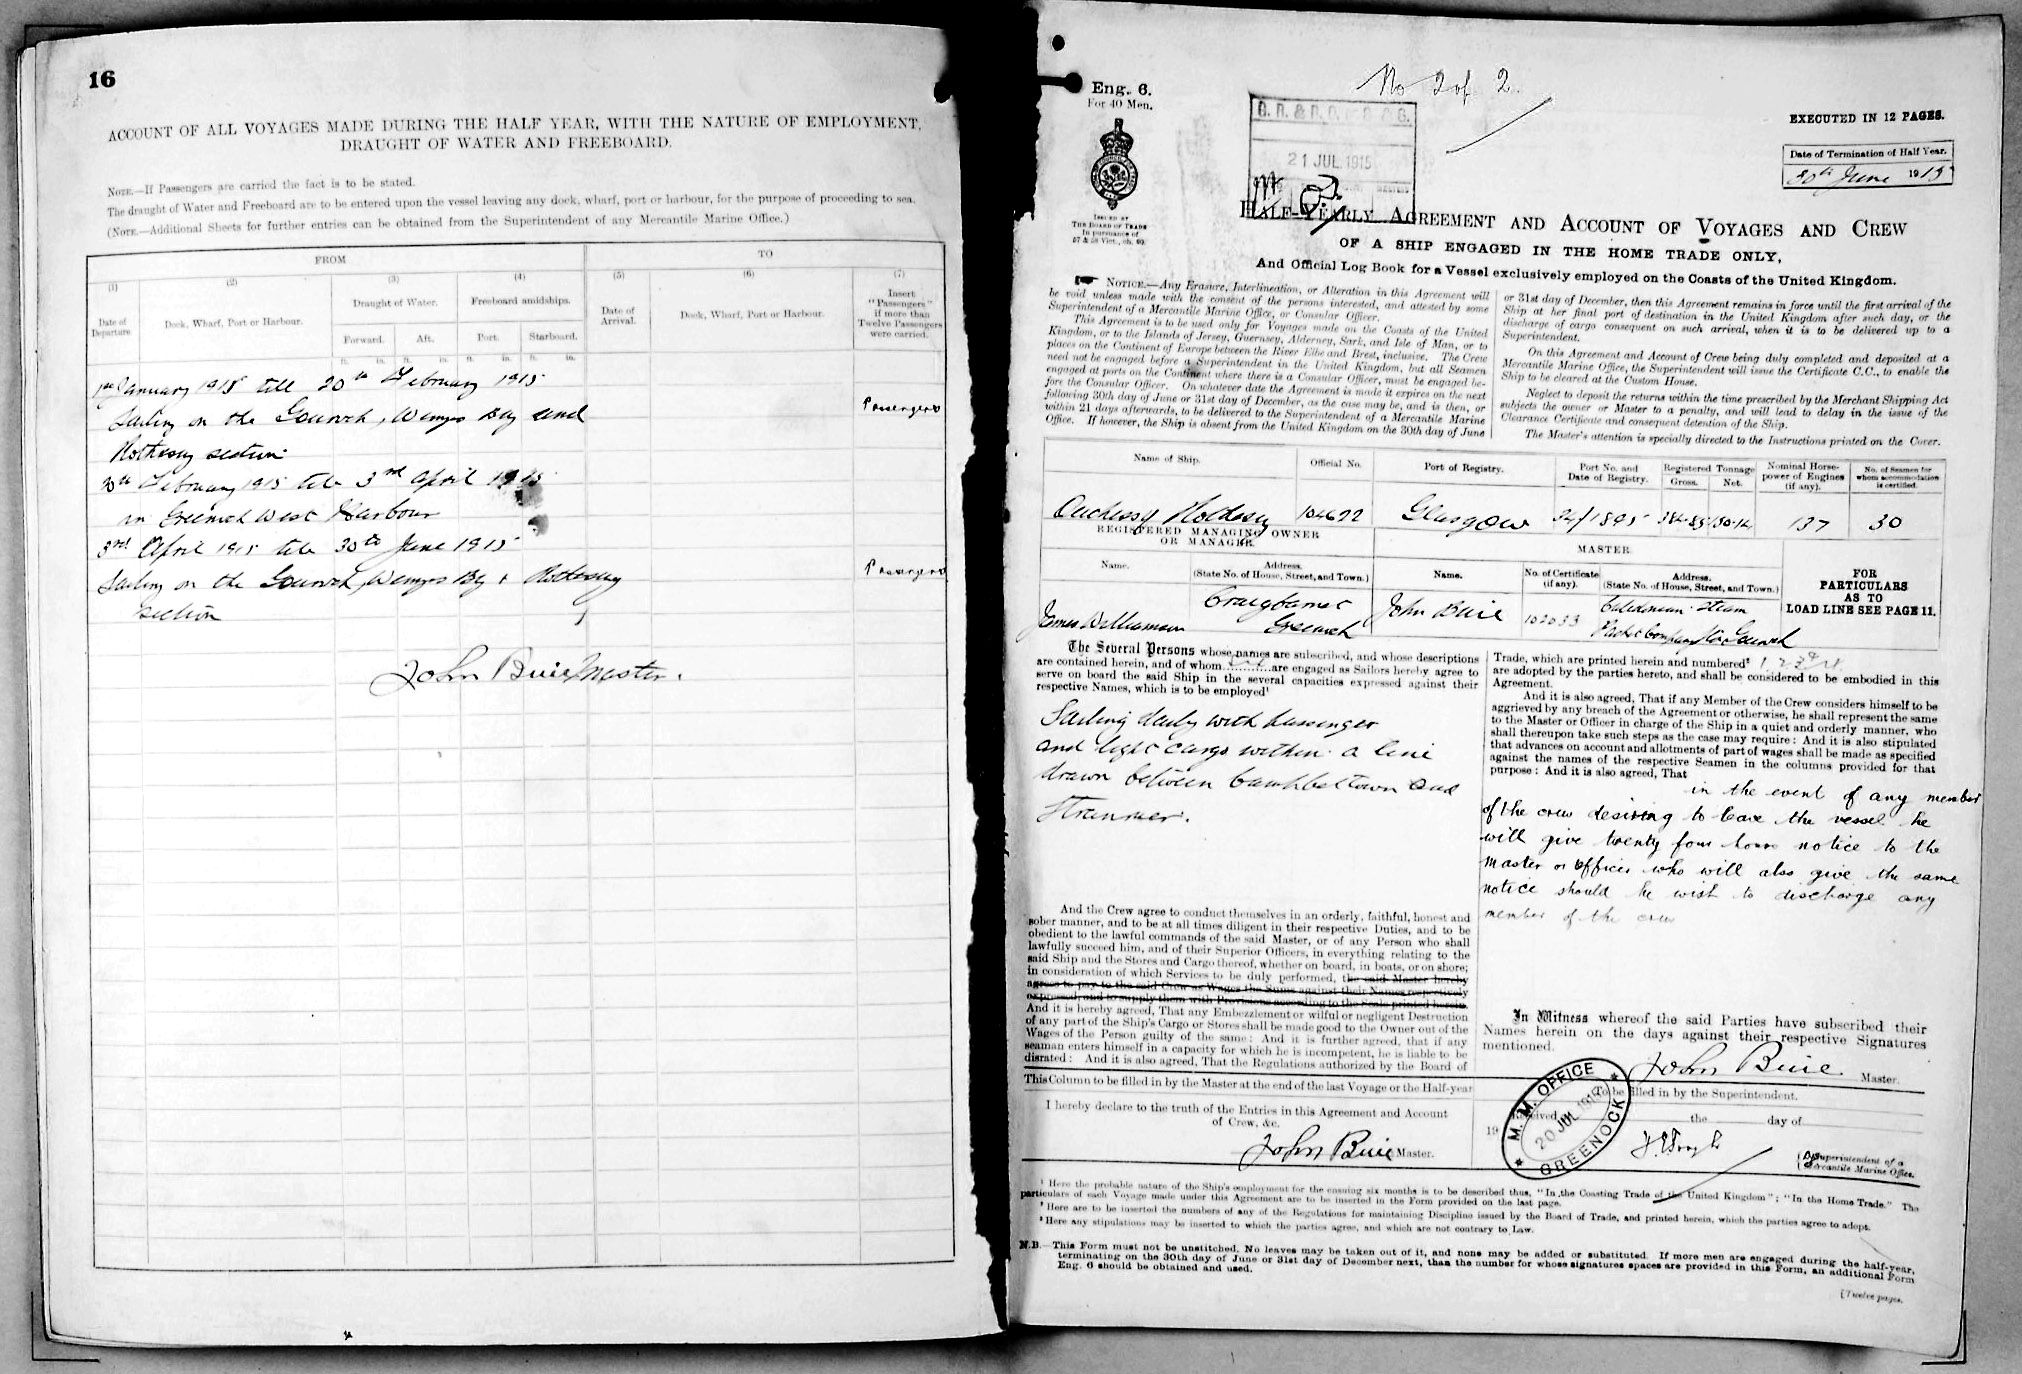 16
ACCOUNT OF ALL VOYAGES MADE DURING THE HALF YEAR, WITH THE NATURE OF EMPLOYMENT,
DRAUGHT OF WATER AND FREEBOARD.
NOTE.—If Passengers are carried the fact is to be stated.
The draught of Water and Freeboard are to be entered upon the vessel leaving any dock, wharf, port or harbour, for the purpose of proceeding to sea.
(NOTE.—Additional Sheets for further entries can be obtained from the Superintendent of any Mercantile Marine Office.)
FROM TO
(1) (2) (3) (4) (5) (6) (7)
Date of Departure. Dock, Wharf, Port or Harbour. Draught of Water. Freeboard amidships. Date of Arrival. Dock, Wharf, Port or Harbour. Insert "Passengers" if more than Twelve Passengers were carried.
Forward. Aft. Port. Starboard.
ft. in. ft. in. ft. in. ft. in.
1st January 1915 till 20th February 1915
Sailing on the Gourock, Wemyss Bay and Passengers
Rothesay section
20th February 1915 till 3rd April 1915
in Greenock West Harbour
3rd April 1915 till 30th June 1915
Sailing on the Gourock, Wemyss Bay & Rothesay Passengers
section
John Buie Master.
Eng. 6.
For 40 Men.
No 2 of 2
21 JUL 1915
EXECUTED IN 12 PAGES.
Date of Termination of Half Year.
30th June 1915
ISSUED BY
THE BOARD OF TRADE
In pursuance of
57 & 58 Vict., ch. 60.
HALF-YEARLY AGREEMENT AND ACCOUNT OF VOYAGES AND CREW
OF A SHIP ENGAGED IN THE HOME TRADE ONLY,
And Official Log Book for a Vessel exclusively employed on the Coasts of the United Kingdom.
NOTICE.—Any Erasure, Interlineation, or Alteration in this Agreement will
be void unless made with the consent of the persons interested, and attested by some
Superintendent of a Mercantile Marine Office, or Consular Officer.
This Agreement is to be used only for Voyages made on the Coasts of the United
Kingdom, or to the Islands of Jersey, Guernsey, Alderney, Sark, and Isle of Man, or to
places on the Continent of Europe between the River Elbe and Brest, inclusive. The Crew
need not be engaged before a Superintendent in the United Kingdom, but all Seamen
engaged at ports on the Continent where there is a Consular Officer, must be engaged be-
fore the Consular Officer. On whatever date the Agreement is made it expires on the next
following 30th day of June or 31st day of December, as the case may be, and is then, or
within 21 days afterwards, to be delivered to the Superintendent of a Mercantile Marine
Office. If however, the Ship is absent from the United Kingdom on the 30th day of June
or 31st day of December, then this Agreement remains in force until the first arrival of the
Ship at her final port of destination in the United Kingdom after such day, or the
discharge of cargo consequent on such arrival, when it is to be delivered up to a
Superintendent.
On this Agreement and Account of Crew being duly completed and deposited at a
Mercantile Marine Office, the Superintendent will issue the Certificate C.C., to enable the
Ship to be cleared at the Custom House.
Neglect to deposit the returns within the time prescribed by the Merchant Shipping Act
subjects the owner or Master to a penalty, and will lead to delay in the issue of the
Clearance Certificate and consequent detention of the Ship.
The Master's attention is specially directed to the Instructions printed on the Cover.
Name of Ship. Official No. Port of Registry. Port No. and Date of Registry. Registered Tonnage Gross. Net. Nominal Horse-power of Engines (if any). No. of Seamen for whom accommodation is certified.
Duchess of Rothesay 104622 Glasgow 34/1895 384.85 150.14 137 30
REGISTERED MANAGING OWNER
OR MANAGER.
MASTER.
Name. Address. (State No. of House, Street, and Town.) Name. No. of Certificate (if any). Address. (State No. of House, Street, and Town.)
FOR
PARTICULARS
AS TO
LOAD LINE SEE PAGE 11.
James Williamson Craigbarnet Greenock John Buie 102033 Caledonian Steam Packet Company Ltd Gourock
The Several Persons whose names are subscribed, and whose descriptions
are contained herein, and of whom are engaged as Sailors hereby agree to
serve on board the said Ship in the several capacities expressed against their
respective Names, which is to be employed¹
Sailing daily with passenger
and light cargo within a line
drawn between Campbeltown and
Stranraer.
And the Crew agree to conduct themselves in an orderly, faithful, honest and
sober manner, and to be at all times diligent in their respective Duties, and to be
obedient to the lawful commands of the said Master, or of any Person who shall
lawfully succeed him, and of their Superior Officers, in everything relating to the
said Ship and the Stores and Cargo thereof, whether on board, in boats, or on shore;
in consideration of which Services to be duly performed, the said Master hereby
agrees to pay to the said Crew as Wages the Sums against their Names respectively
expressed, and to supply them with Provisions according to the Scale printed herein.
And it is hereby agreed, That any Embezzlement or wilful or negligent Destruction
of any part of the Ship's Cargo or Stores shall be made good to the Owner out of the
Wages of the Person guilty of the same: And it is further agreed, that if any
seaman enters himself in a capacity for which he is incompetent, he is liable to be
disrated: And it is also agreed, That the Regulations authorized by the Board of
Trade, which are printed herein and numbered² 1 2 3 & 4
are adopted by the parties hereto, and shall be considered to be embodied in this
Agreement.
And it is also agreed, That if any Member of the Crew considers himself to be
aggrieved by any breach of the Agreement or otherwise, he shall represent the same
to the Master or Officer in charge of the Ship in a quiet and orderly manner, who
shall thereupon take such steps as the case may require: And it is also stipulated
that advances on account and allotments of part of wages shall be made as specified
against the names of the respective Seamen in the columns provided for that
purpose: And it is also agreed, That
in the event of any member
of the crew desiring to leave the vessel he
will give twenty four hours notice to the
Master or Officer who will also give the same
notice should he wish to discharge any
member of the crew
In Witness whereof the said Parties have subscribed their
Names herein on the days against their respective Signatures
mentioned.
John Buie Master.
This Column to be filled in by the Master at the end of the last Voyage or the Half-year
I hereby declare to the truth of the Entries in this Agreement and Account
of Crew, &c.
John Buie Master.
To be filled in by the Superintendent.
Received
19 the day of
M. M. OFFICE
20 JUL 1915
GREENOCK
Superintendent of a
Mercantile Marine Office.
¹ Here the probable nature of the Ship's employment for the ensuing six months is to be described thus, "In the Coasting Trade of the United Kingdom"; "In the Home Trade." The
particulars of each Voyage made under this Agreement are to be inserted in the Form provided on the last page.
² Here are to be inserted the numbers of any of the Regulations for maintaining Discipline issued by the Board of Trade, and printed herein, which the parties agree to adopt.
³ Here any stipulations may be inserted to which the parties agree, and which are not contrary to Law.
N.B.—This Form must not be unstitched. No leaves may be taken out of it, and none may be added or substituted. If more men are engaged during the half-year,
terminating on the 30th day of June or 31st day of December next, than the number for whose signatures spaces are provided in this Form, an additional Form
Eng. 6 should be obtained and used.
[Twelve pages.